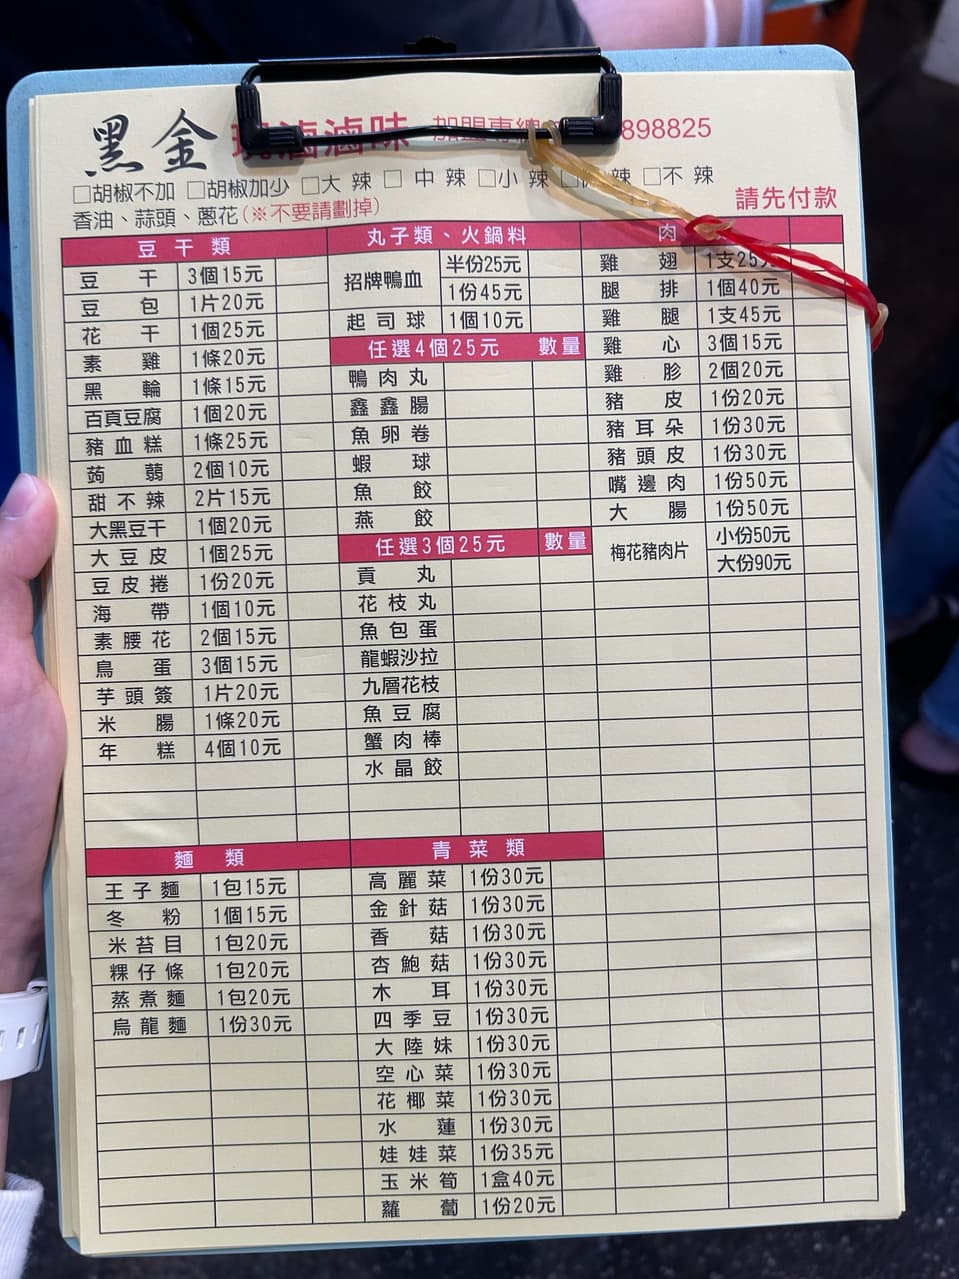 黑金 滷滷味 加盟專線 898825
□胡椒不加 □胡椒加少 □大辣 □中辣 □小辣 □ 辣 □不辣
香油、蒜頭、蔥花(※不要請劃掉)
請先付款
豆干類
豆干 3個15元
豆包 1片20元
花干 1個25元
素雞 1條20元
黑輪 1條15元
百頁豆腐 1個20元
豬血糕 1條25元
蒟蒻 2個10元
甜不辣 2片15元
大黑豆干 1個20元
大豆皮 1個25元
豆皮捲 1份20元
海帶 1個10元
素腰花 2個15元
鳥蛋 3個15元
芋頭簽 1片20元
米腸 1條20元
年糕 4個10元
麵類
王子麵 1包15元
冬粉 1個15元
米苔目 1包20元
粿仔條 1包20元
蒸煮麵 1包20元
烏龍麵 1份30元
丸子類、火鍋料
招牌鴨血 半份25元
1份45元
起司球 1個10元
任選4個25元 數量
鴨肉丸
鑫鑫腸
魚卵卷
蝦球
魚餃
燕餃
任選3個25元 數量
貢丸
花枝丸
魚包蛋
龍蝦沙拉
九層花枝
魚豆腐
蟹肉棒
水晶餃
青菜類
高麗菜 1份30元
金針菇 1份30元
香菇 1份30元
杏鮑菇 1份30元
木耳 1份30元
四季豆 1份30元
大陸妹 1份30元
空心菜 1份30元
花椰菜 1份30元
水蓮 1份30元
娃娃菜 1份35元
玉米筍 1盒40元
蘿蔔 1份20元
肉
雞翅 1支25元
腿排 1個40元
雞腿 1支45元
雞心 3個15元
雞胗 2個20元
豬皮 1份20元
豬耳朵 1份30元
豬頭皮 1份30元
嘴邊肉 1份50元
大腸 1份50元
梅花豬肉片 小份50元
大份90元